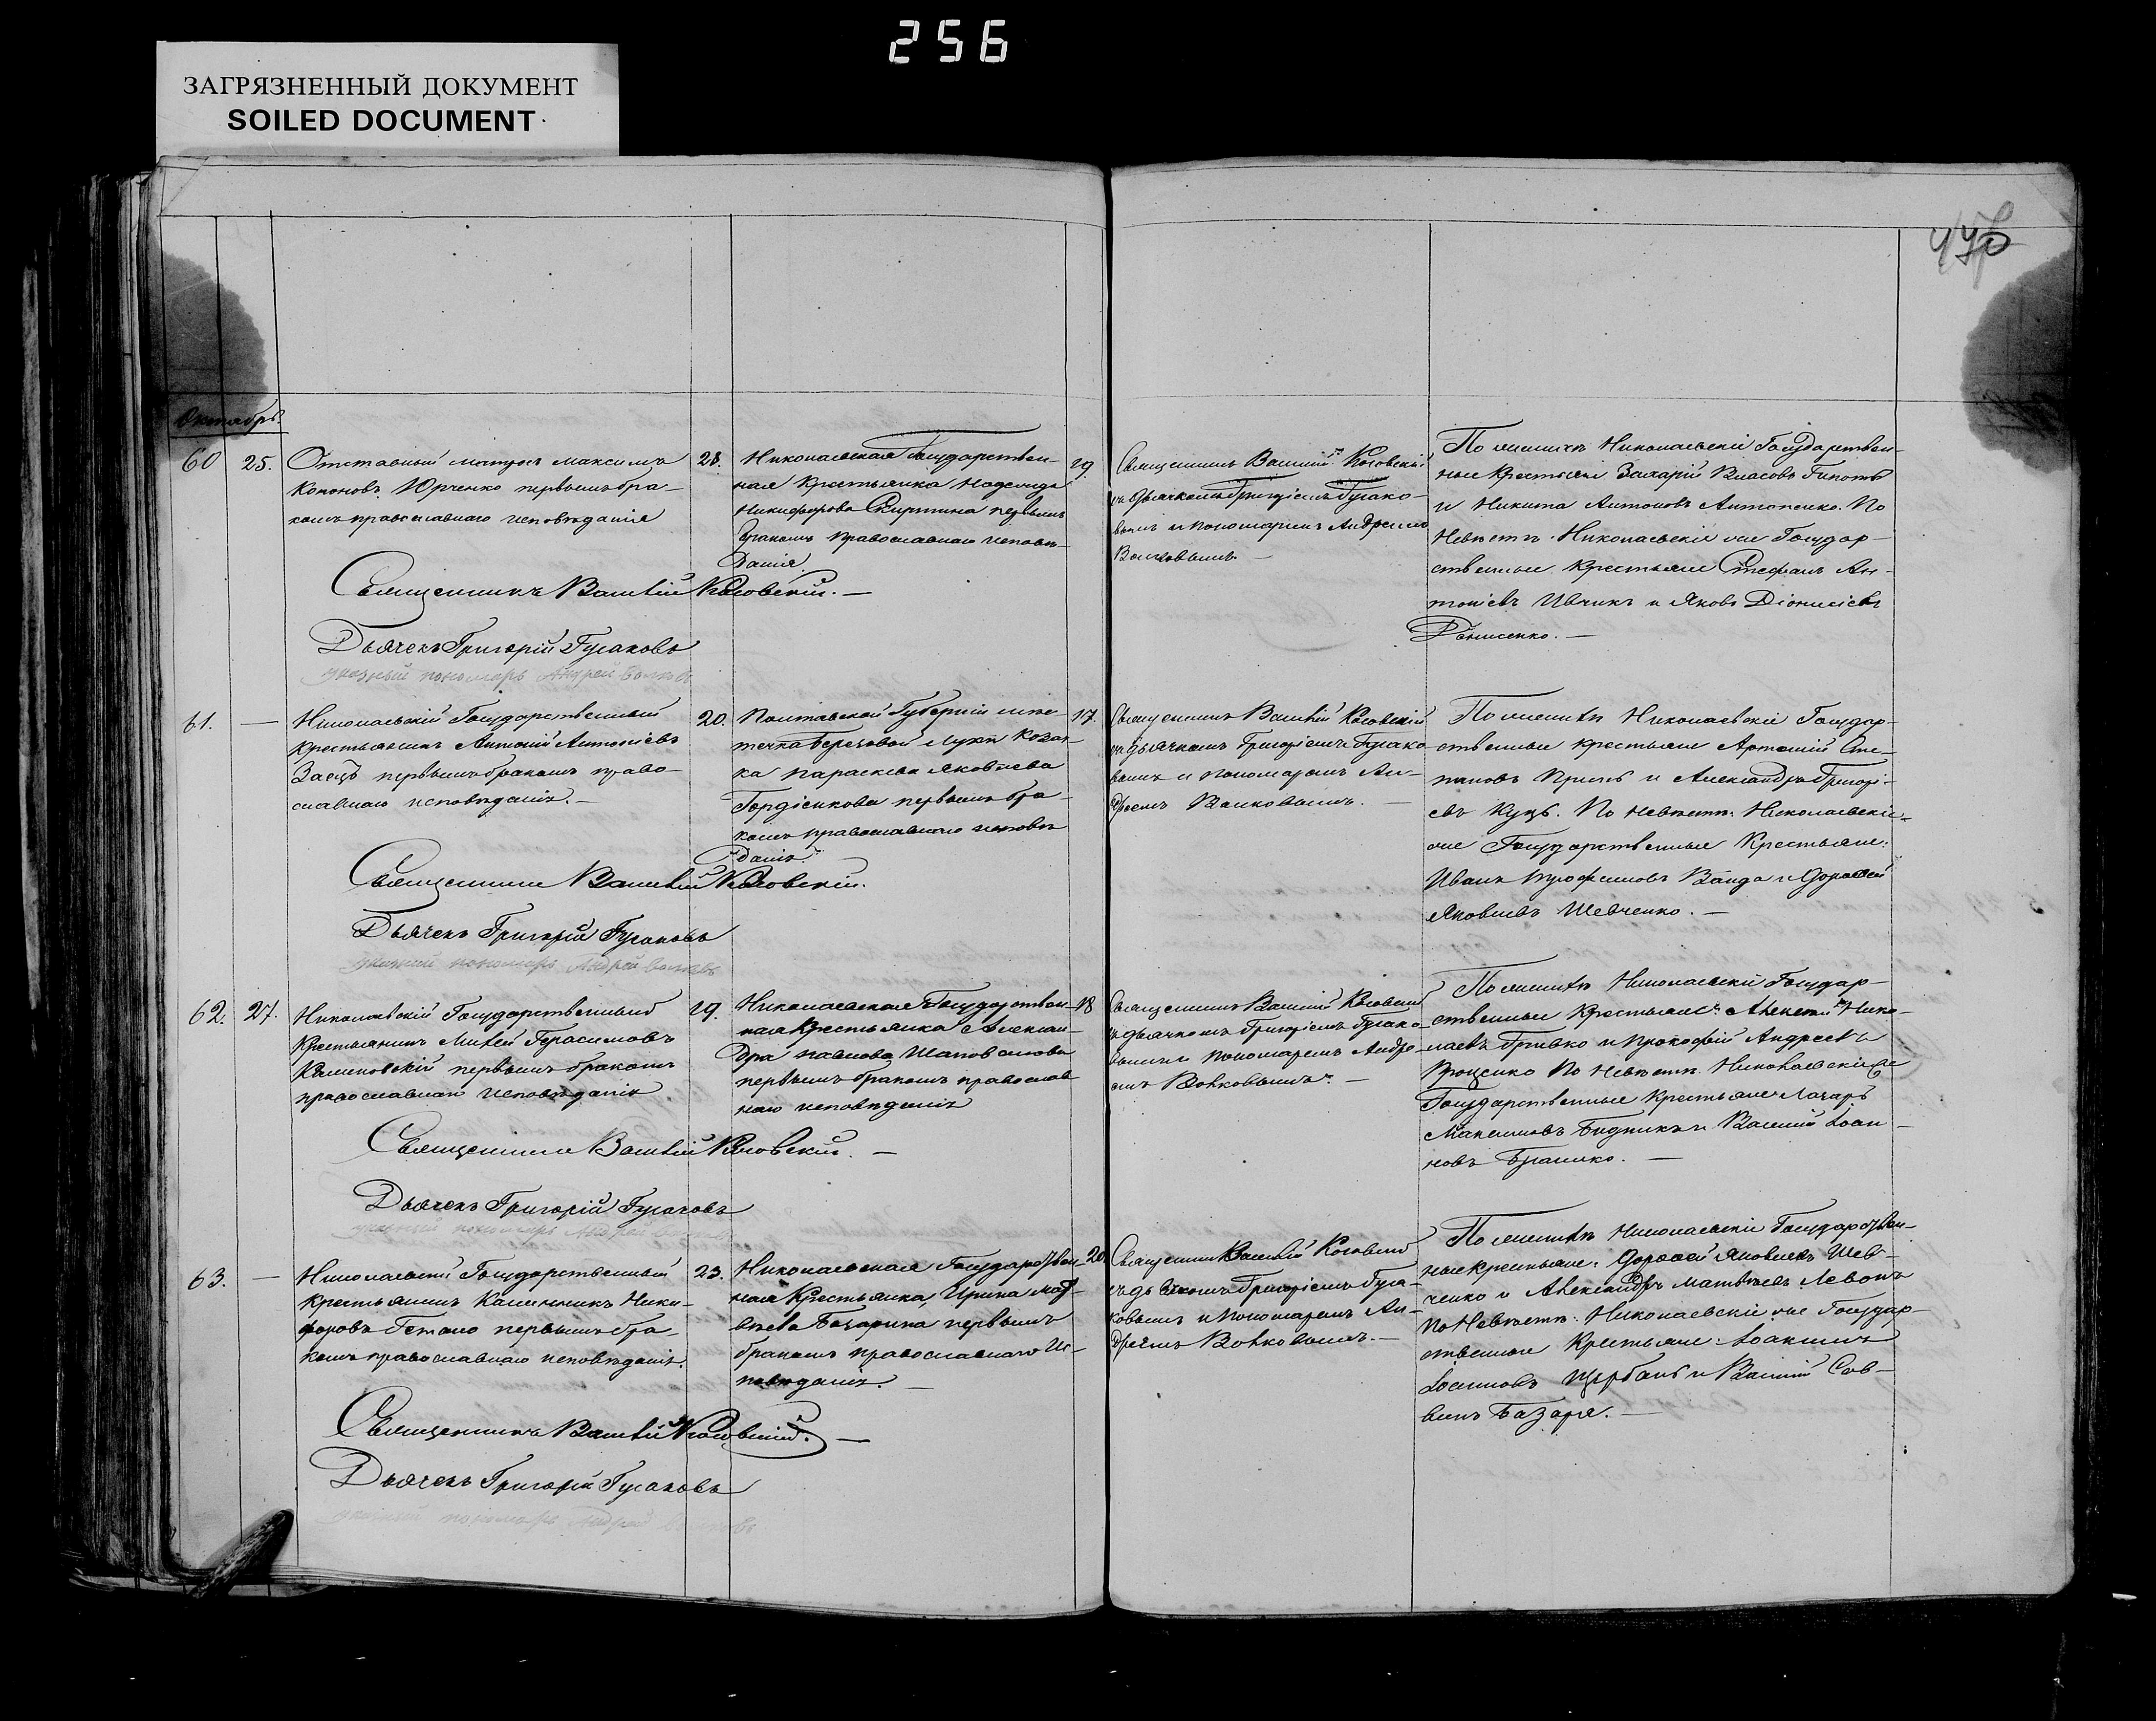 256
ЗАГРЯЗНЕННЫЙ ДОКУМЕНТ
SOILED DOCUMENT
Октябрь
60
25.
Отставный матросъ Максимъ
Кононовъ Юрченко первымъ бра-
комъ православнаго исповѣданія
28.
Николаевская Государствен-
ная крестьянка Надежда
Никифорова Скирпина первымъ
бракомъ православнаго исповѣ-
данія
19
Священникъ Василій Косовскій
съ дьячкомъ Григоріемъ Гусако-
вымъ и пономаремъ Андреемъ
Волковымъ. —
По женихѣ Николаевскіе Государствен-
ные крестьяне Захарій Власовъ
и Никита Антоновъ Антоненко. По
Невѣстѣ. Николаевскіе же Государ-
ственные крестьяне Стефанъ Ан-
тоніевъ Ивчикъ и Яковъ Діонисіевъ
Денисенко. —
Священникъ Василій Косовскій. —
Дьячекъ Григорій Гусаковъ
указный пономарь Андрей Волковъ
61.
—
Николаевскій Государственный
крестьянинъ Антоній Антоніевъ
Заецъ первымъ бракомъ право-
славнаго исповѣданія. —
20.
Полтавской Губерніи мѣс-
течка Березовой Луки Козач-
ка Параскева Яковлева
Гордіенкова первымъ бра-
комъ православнаго исповѣ
даніѧ.
17.
Священникъ Василій Косовскій
съ дьячкомъ Григоріемъ Гусако-
вымъ и пономаремъ Ан-
дреемъ Волковымъ. —
По женихѣ Николаевскіе Государ-
ственные крестьяне Артемій Сте-
пановъ и Александръ Григорі-
евъ Куць. По невѣстѣ: Николаевскіе
же Государственные Крестьяне:
Иванъ Трофимовъ Ванда и Дорофей
Яковлевъ Шевченко. —
Священникъ Василій Косовскій.
Дьячекъ Григорій Гусаковъ
указный пономарь Андрей Волковъ
62.
27.
Николаевскій Государственный
Крестьянинъ Герасимовъ
первымъ бракомъ
православнаго исповѣданія
19.
Николаевская Государствен-
ная Крестьянка Алексан-
дра Павлова Шаповалова
первымъ бракомъ православ
наго исповѣданія
18
Священникъ Василій Косовскій
съ дьячкомъ Григоріемъ Гусако-
вымъ и Пономаремъ Андре-
емъ Волковымъ. —
По женихѣ Николаевскіе Государ-
ственные Крестьяне: Алексѣй Нико-
лаевъ Гривко и Прокофій Андреевъ
Проценко По Невѣстѣ. Николаевскіе же
Государственные Крестьяне Лазарь
Максимовъ Бидникъ и Василій Іоан-
новъ —
Священникъ Василій Косовскій. —
Дьячекъ Григорій Гусаковъ
указный пономарь Андрей Волковъ
63.
—
Николаевскій Государственный
крестьянинъ Калинникъ Ники-
форовъ первымъ бра-
комъ православнаго исповѣданія.
23.
Николаевская Государствен-
ная Крестьянка, Ирина Мат-
вѣева первымъ
бракомъ православнаго Ис-
повѣданія. —
20
Священникъ Василій Косовскій
съ дьячкомъ Григоріемъ Гуса-
ковымъ и Пономаремъ Ан-
дреемъ Волковымъ. —
По женихѣ Николаевскіе Государствен-
ные крестьяне: Дорофей Яковлевъ Шев-
ченко и Александръ Матвѣевъ
По Невѣстѣ: Николаевскіе же Государ-
ственные Крестьяне: Іоакимъ
Іоанновъ Щербань и Василій Сав-
винъ Базаря. —
Священникъ Василій Косовскій. —
Дьячекъ Григорій Гусаковъ
указный пономарь Андрей Волковъ